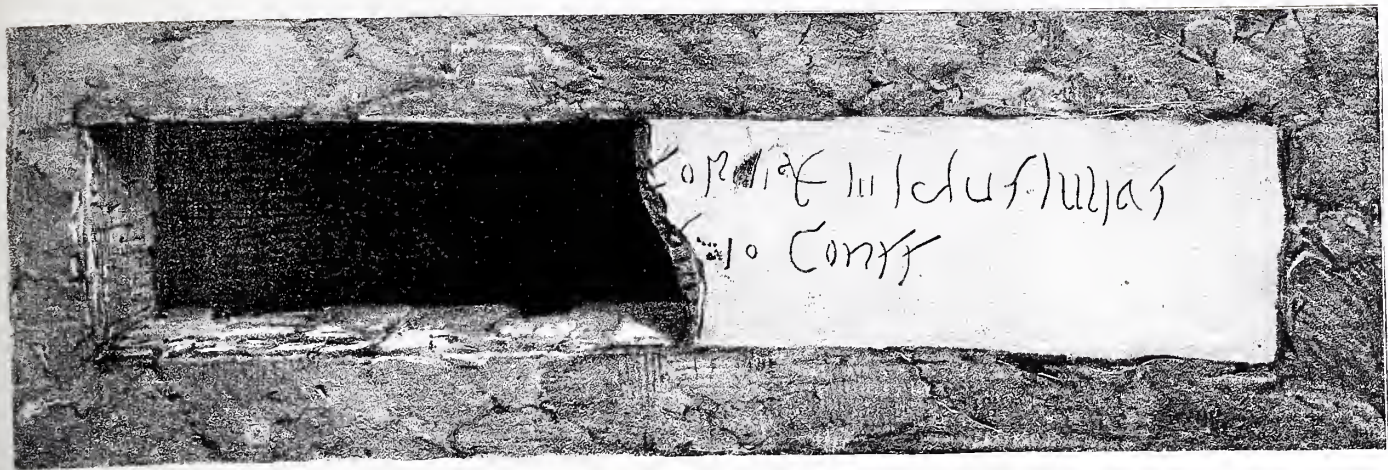 ordiae III Idus Iulias
io Conss